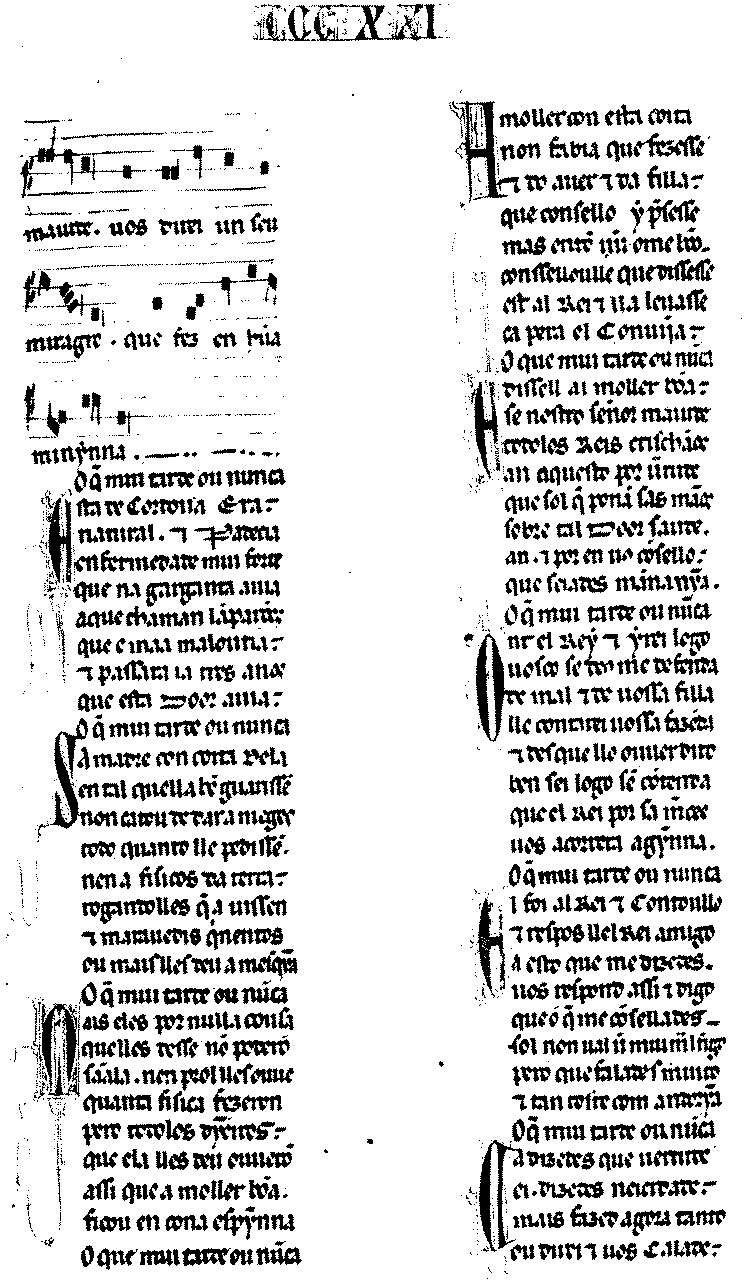 CCCXXI
maurre. uos direi un seu
miragre. que fez en hũa
minỹnna.
O q̃ mui tarde ou nunca
Esta de Cordoua Era.
natural. ⁊ Padecia
enfermedade mui forte
que na garganta auia
a que chaman lãparões
que e maa malautia.
⁊ passara ia tres anos
que esta door auia.
O q̃ mui tarde ou nunca
Sa madre con coita dela
en tal que lla bẽ guarissẽ
non catou de dar a meges
todo quanto lle pedissẽ.
nen a fisicos da terra.
rogandolles q̃ a uissen
⁊ marauedis q̃nentos
ou mais lles deu a mesq̃a
O q̃ mui tarde ou nũca
Mais eles por nulla cousa
que lles desse nõ poderõ
sãala. nen prol lle ouue
quanta fisica fezeron
pero todolos dỹeiros.
que ela lles deu ouuerõ
assi que a moller bõa.
ficou en cona espỹnna
O que mui tarde ou nũca
A moller con esta coita
non sabia que fezesse
⁊ do auer ⁊ da filla.
que consello ỹ p̃sesse
mas entõ ũu ome bõo
consellou lle que dissesse
est al Rei ⁊ lla leuasse
ca pera el Conuijia.
O que mui tarde ou nũca
Dissell ai moller bõa.
se nostro sen̄or maurre
todolos Reis cristiãos
an aquesto por uertude
que sol q̃ ponã sas mãos
sobre tal door saude.
an. ⁊ por en uos cõsello.
que sciades mannãnỹa.
O q̃ mui tarde ou nũca
Ant el Rey ⁊ ỹrei logo
uosco se deus me defenda
de mal ⁊ de uossa filla
lle contarei uossa fazẽda
⁊ des que llo ouuer dito
ben sei logo sẽ cõtenda
que el Rei por sa merçee
uos acorrera agỹnna.
O q̃ mui tarde ou nunca
El foi al Rei ⁊ Contoullo
⁊ respos llel Rei amigo
A esto que me dizedes.
uos respond assi ⁊ digo
que o q̃ me cõsellades
sol non ual ũ muj mal figo
pero que falades muito
⁊ tan toste com andorỹa
O q̃ mui tarde ou nũca
Ca dizedes que uertude
ei. dizedes neicidade.
mais fazed agora tanto
eu direi ⁊ uos Calade.